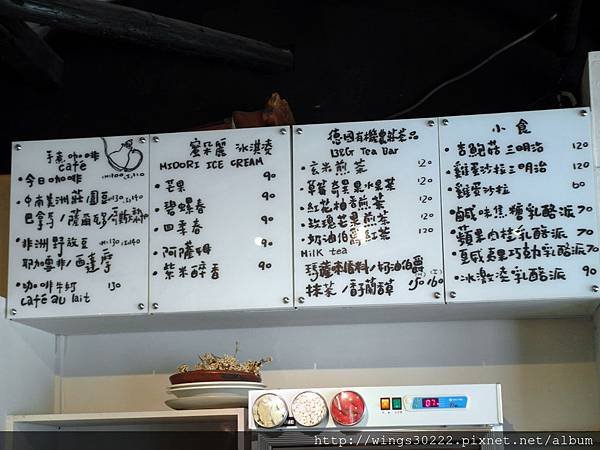 手煮咖啡
café
今日咖啡
中南美洲莊園豆
非洲野放豆
耶加雪菲
咖啡牛奶 130
café au lait
蜜朵麗 冰淇淋
MIDORI ICE CREAM
芒果 90
碧螺春 90
四季春 90
阿薩姆 90
紫米醉香 90
德國有機農妹茶品
B&G Tea Bar
玄米煎茶 120
草莓奇異果水果茶 120
紅花柚香煎茶 120
玫瑰芒果煎茶 120
奶油伯爵紅茶 120
Milk tea
抹茶 150 160
小食
杏鮑菇三明治 120
雞蛋沙拉三明治 120
雞蛋沙拉 60
鹹味焦糖乳酪派 70
蘋果肉桂乳酪派 70
夏威夷果巧克力乳酪派 70
冰淇淋乳酪派 90
07
http://wings30222.pixnet.net/album